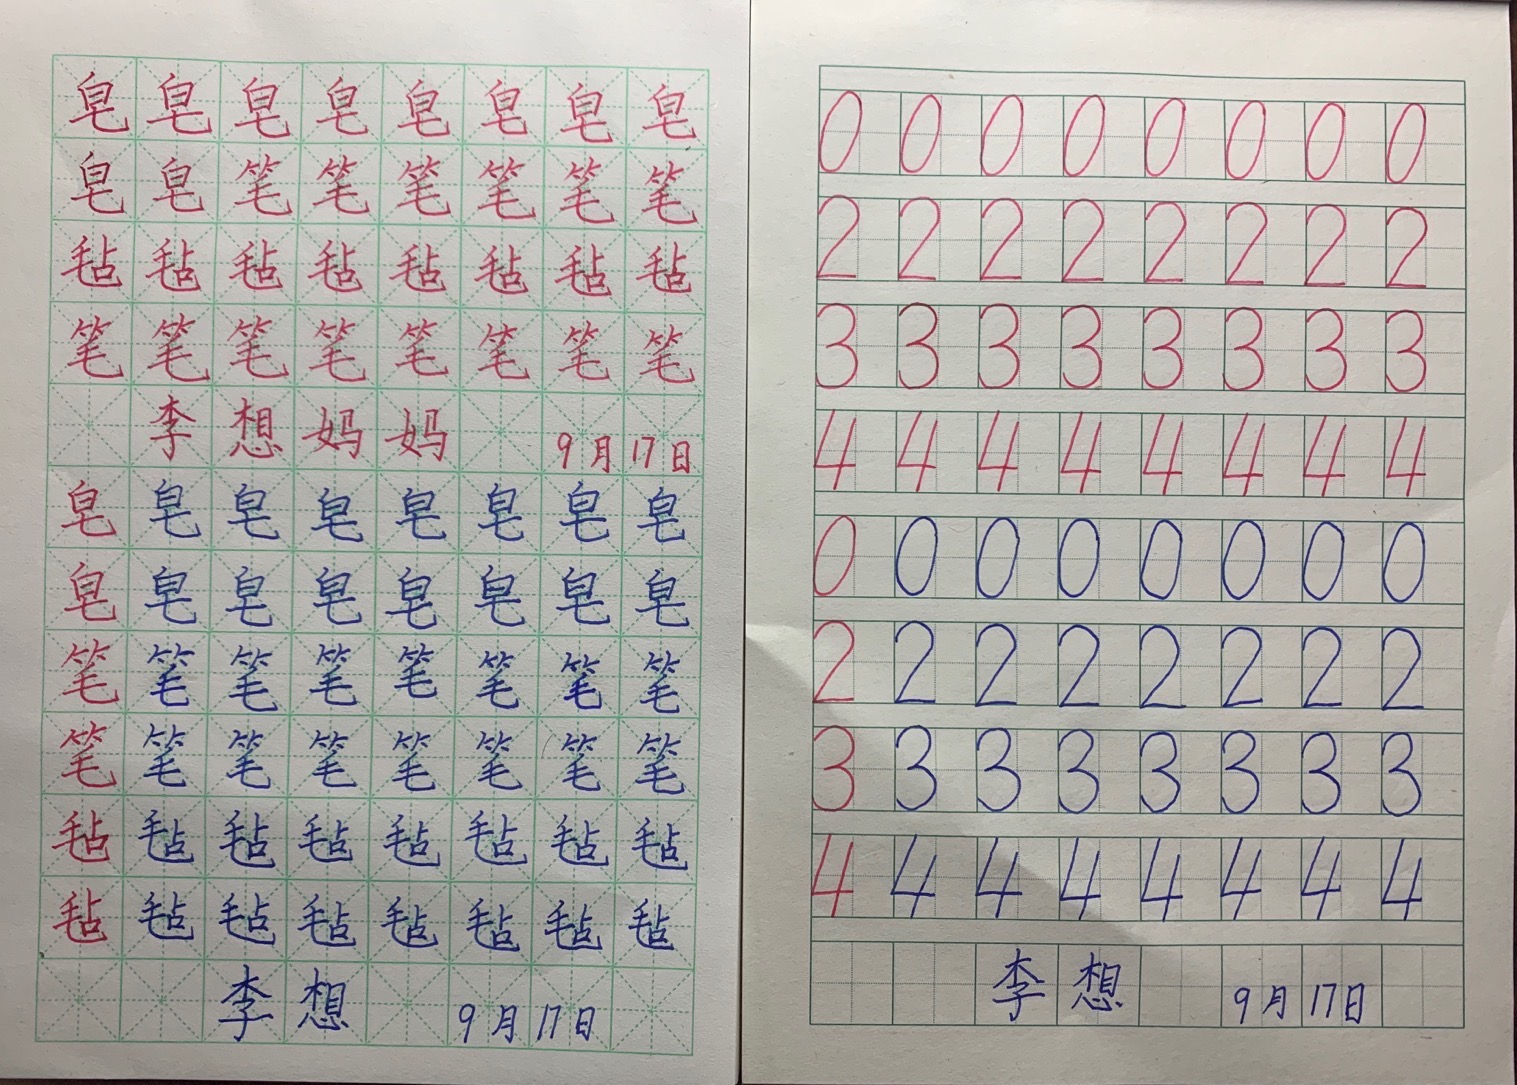 皂皂皂皂皂皂皂皂
皂皂笔笔笔笔笔笔
毡毡毡毡毡毡毡毡
笔笔笔笔笔笔笔笔
李想妈妈 9月17日
皂皂皂皂皂皂皂皂
皂皂皂皂皂皂皂皂
笔笔笔笔笔笔笔笔
笔笔笔笔笔笔笔笔
毡毡毡毡毡毡毡毡
毡毡毡毡毡毡毡毡
李想 9月17日
0 0 0 0 0 0 0 0
2 2 2 2 2 2 2 2
3 3 3 3 3 3 3 3
4 4 4 4 4 4 4 4
0 0 0 0 0 0 0 0
2 2 2 2 2 2 2 2
3 3 3 3 3 3 3 3
4 4 4 4 4 4 4 4
李想 9月17日